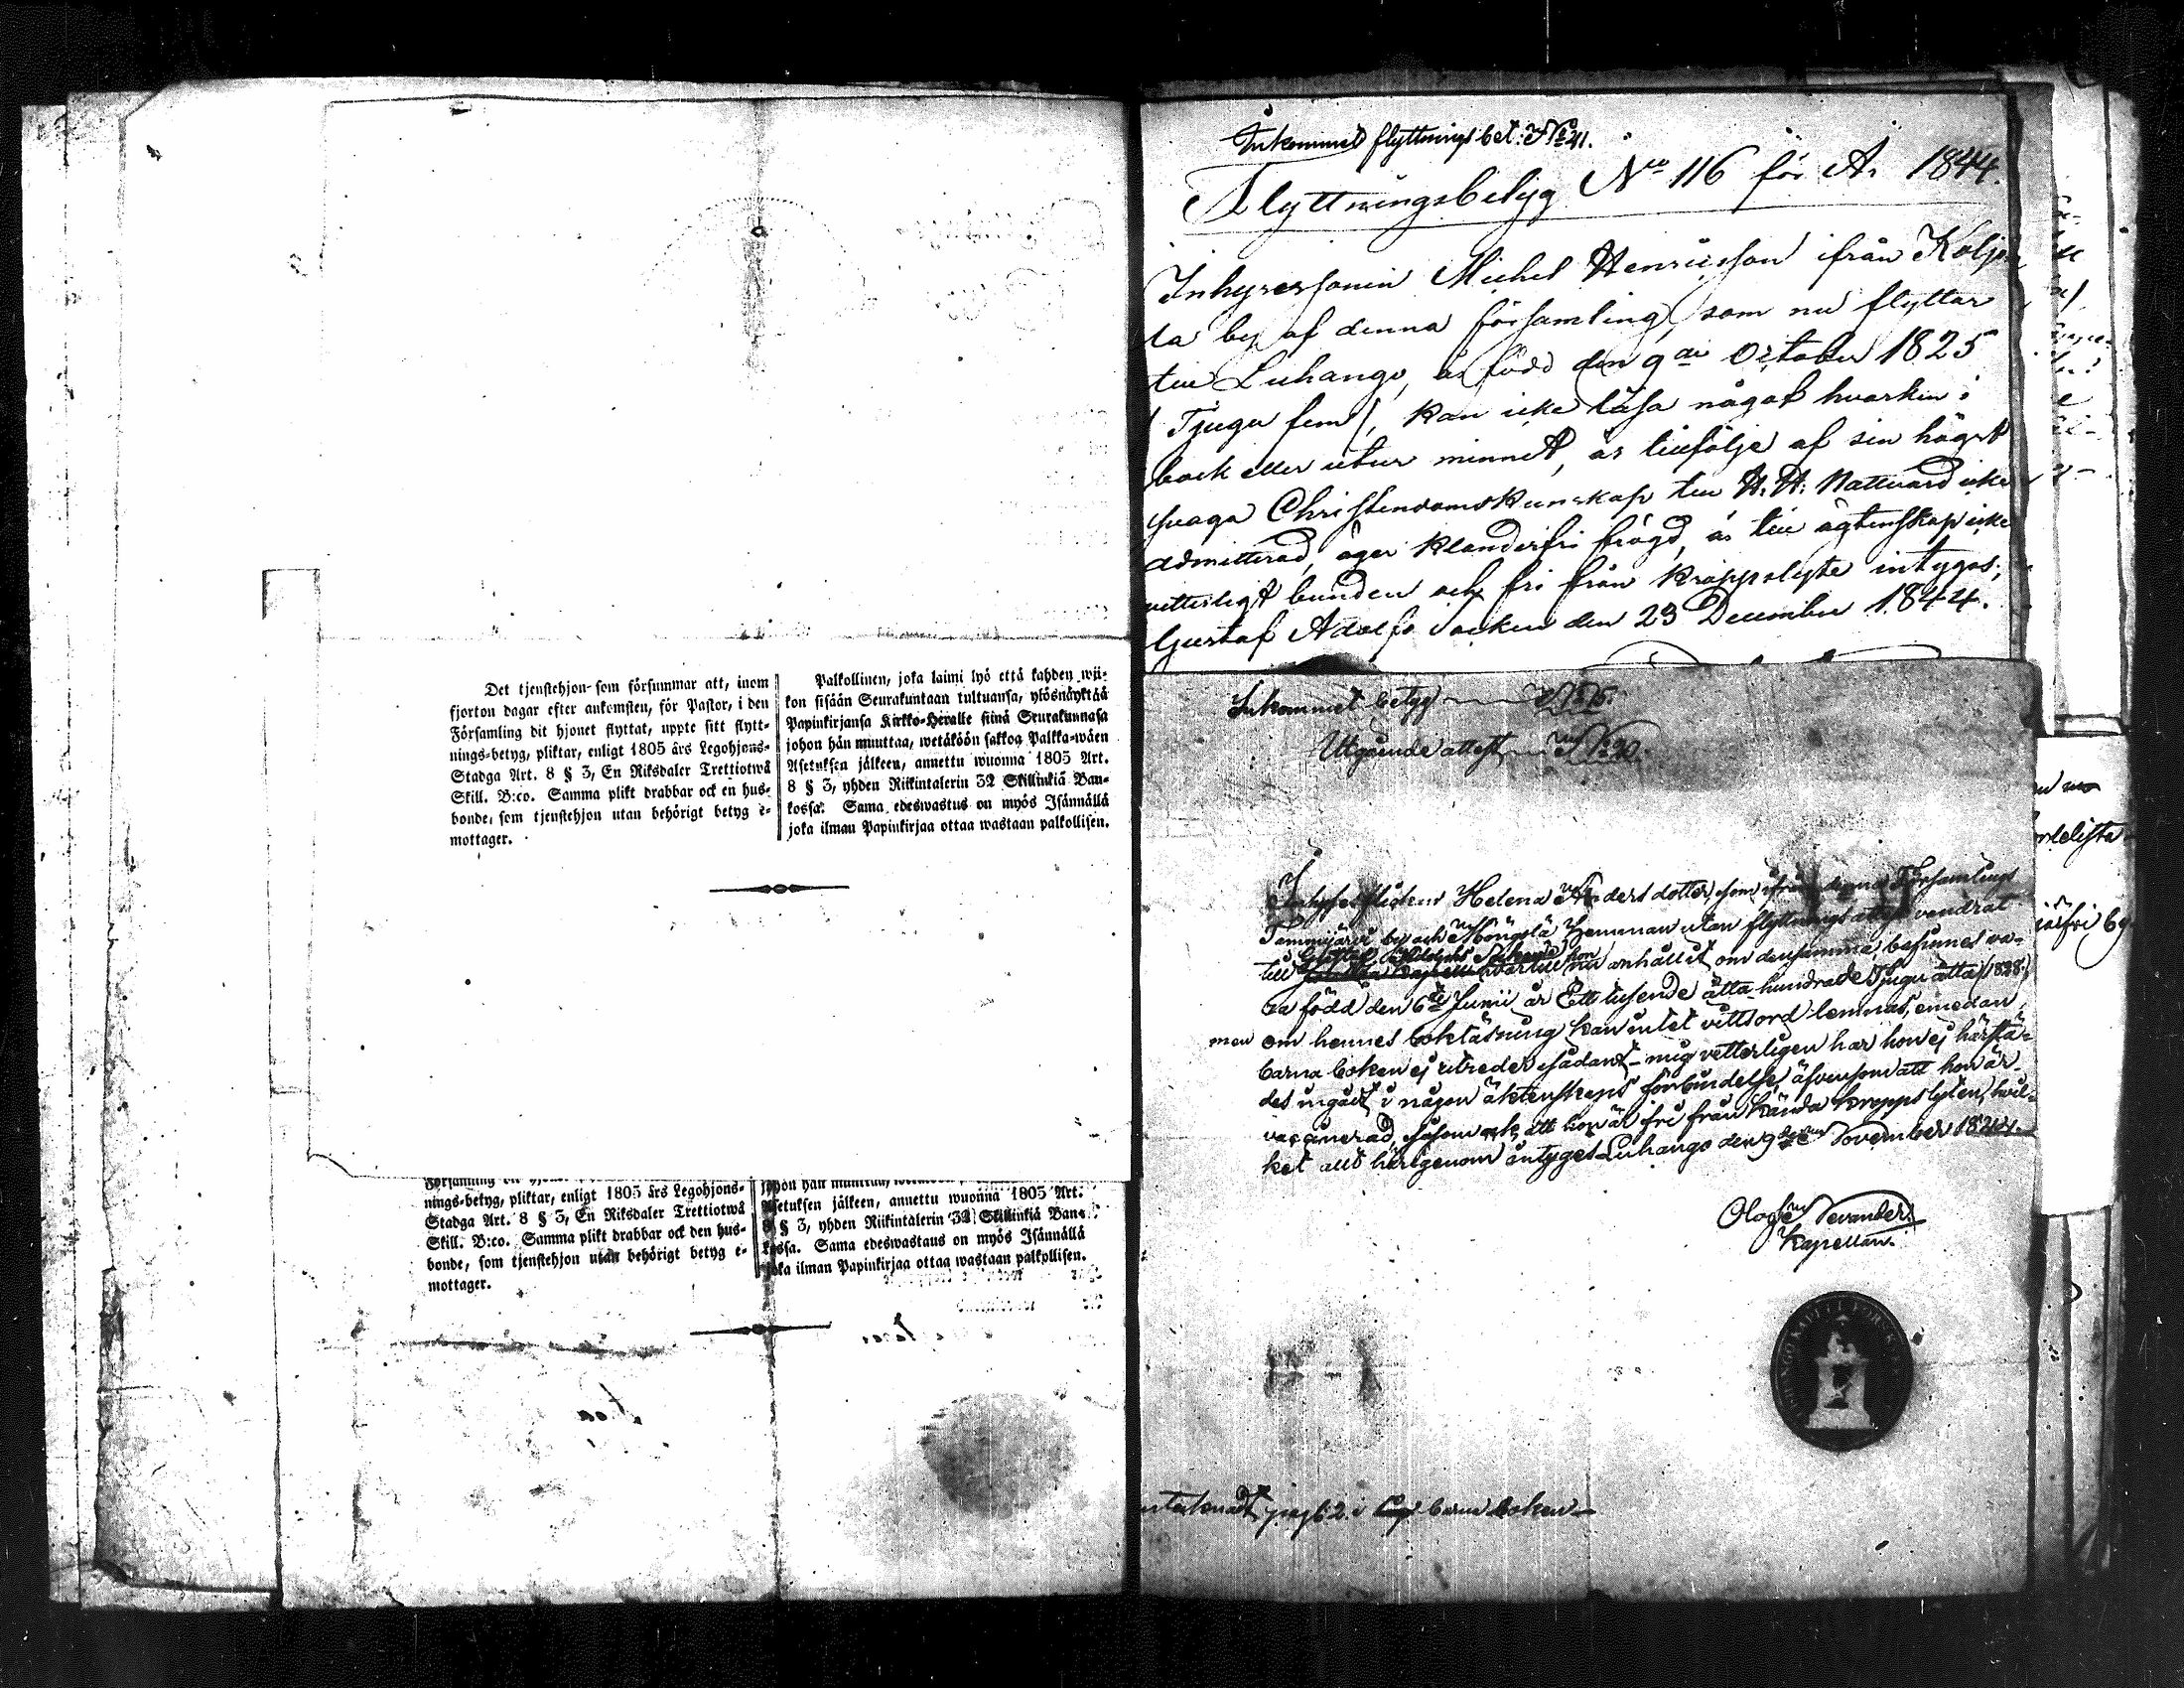 Det tjenstehjon som försummar att, inom
fjorton dagar efter ankomsten, för Pastor, i den
Församling dit hjonet flyttat, uppte sitt flytt-
nings-betyg, pliktar, enligt 1805 års Legohjons-
Stadga Art. 8 § 3, En Riksdaler Trettiotwå
Skill. B:co. Samma plikt drabbar ock en hus-
bonde, som tjenstehjon utan behörigt betyg e-
mottager.
Palkollinen, joka laimi lyö että kahden wii-
kon sisään Seurakuntaan tultuansa, ylösnäyttää
Papinkirjansa Kirkko-Heralle siinä Seurakunnasa
johon hän muuttaa, wetäköön sakkoa Palkka-wäen
Asetuksen jälkeen, annettu wuonna 1805 Art.
8 § 3, yhden Riikintalerin 32 Skillinkiä Ban-
kossa. Sama edeswastus on myös Isännällä
joka ilman Papinkirjaa ottaa wastaan palkollisen.
Församling
nings-betyg, pliktar, enligt 1805 års Legohjons-
Stadga Art. 8 § 3, En Riksdaler Trettiotwå
Skill. B:co. Samma plikt drabbar ock den hus-
bonde, som tjenstehjon utan behörigt betyg e-
mottager.
johon hän muuttaa,
Asetuksen jälkeen, annettu wuonna 1805 Art.
8 § 3, yhden Riikintalerin 32 Skillinkiä Ban-
kossa. Sama edeswastaus on myös Isännällä
joka ilman Papinkirjaa ottaa wastaan palkollisen.
Inkommet flyttnings bet: No 41.
Flyttningsbetyg No 116 för År 1844.
Inhysessonen Michel Henricsson ifrån Koljo
la by af denna församling, som nu flyttar
till Luhango, är född den 9de October 1825
/Tjugu fem/, kan icke läsa något hvarken i
bok eller utur minnet, är till följe af sin högst
svaga Christendomskunskap till H. H. Nattvard icke
admitterad, äger klanderfri frägd, är till ägtenskap icke
vetterligt bunden och fri från kroppslyte intygas;
Gustaf Adolfs socken den 23 December 1844.
Inkommet betyg No 5.
Utgående attest No 20.
Inhysesflickan Helena Andersdotter, som ifrån denna Församlings
Tammijärvi by och Möngölä Hemman utan flyttnings attest vandrat
Gustaf Adolphs Sockend hon
till hvartill nu anhållit om densamma, befinnes va-
ra född den 6te Junii år Ett tusende åtta hundrade Tjugu åtta (1828.)
men om hennes bokläsning kan intet vittsord lemnas, emedan
barna boken ej utreder sådant - mig vetterligen har hon ej härstä-
des ingått i någon äktenskaps förbindelse, äfvensom att hon är
vaccinerad, såsom ock att hon är fri från kända kroppslyten, hvil-
ket allt härigenom intygas Luhango den 9de November 1844.
Olog Nevander.
Kapellan.
antecknadt pag 62 i barn boken